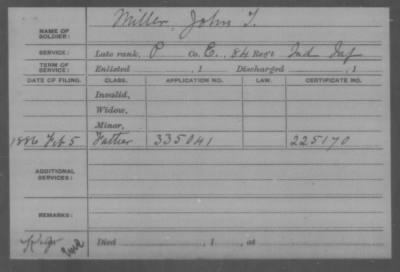 NAME OF SOLDIER: Miller, John T.
SERVICE: Late rank, P Co. E, 84 Reg't Ind Inf
TERM OF SERVICE: Enlisted , 1 Discharged , 1
DATE OF FILING. CLASS. APPLICATION NO. LAW. CERTIFICATE NO.
Invalid,
Widow,
Minor,
1886 Feb 5 Father 335041 225170
ADDITIONAL SERVICES:
REMARKS:
Died , 1 , at